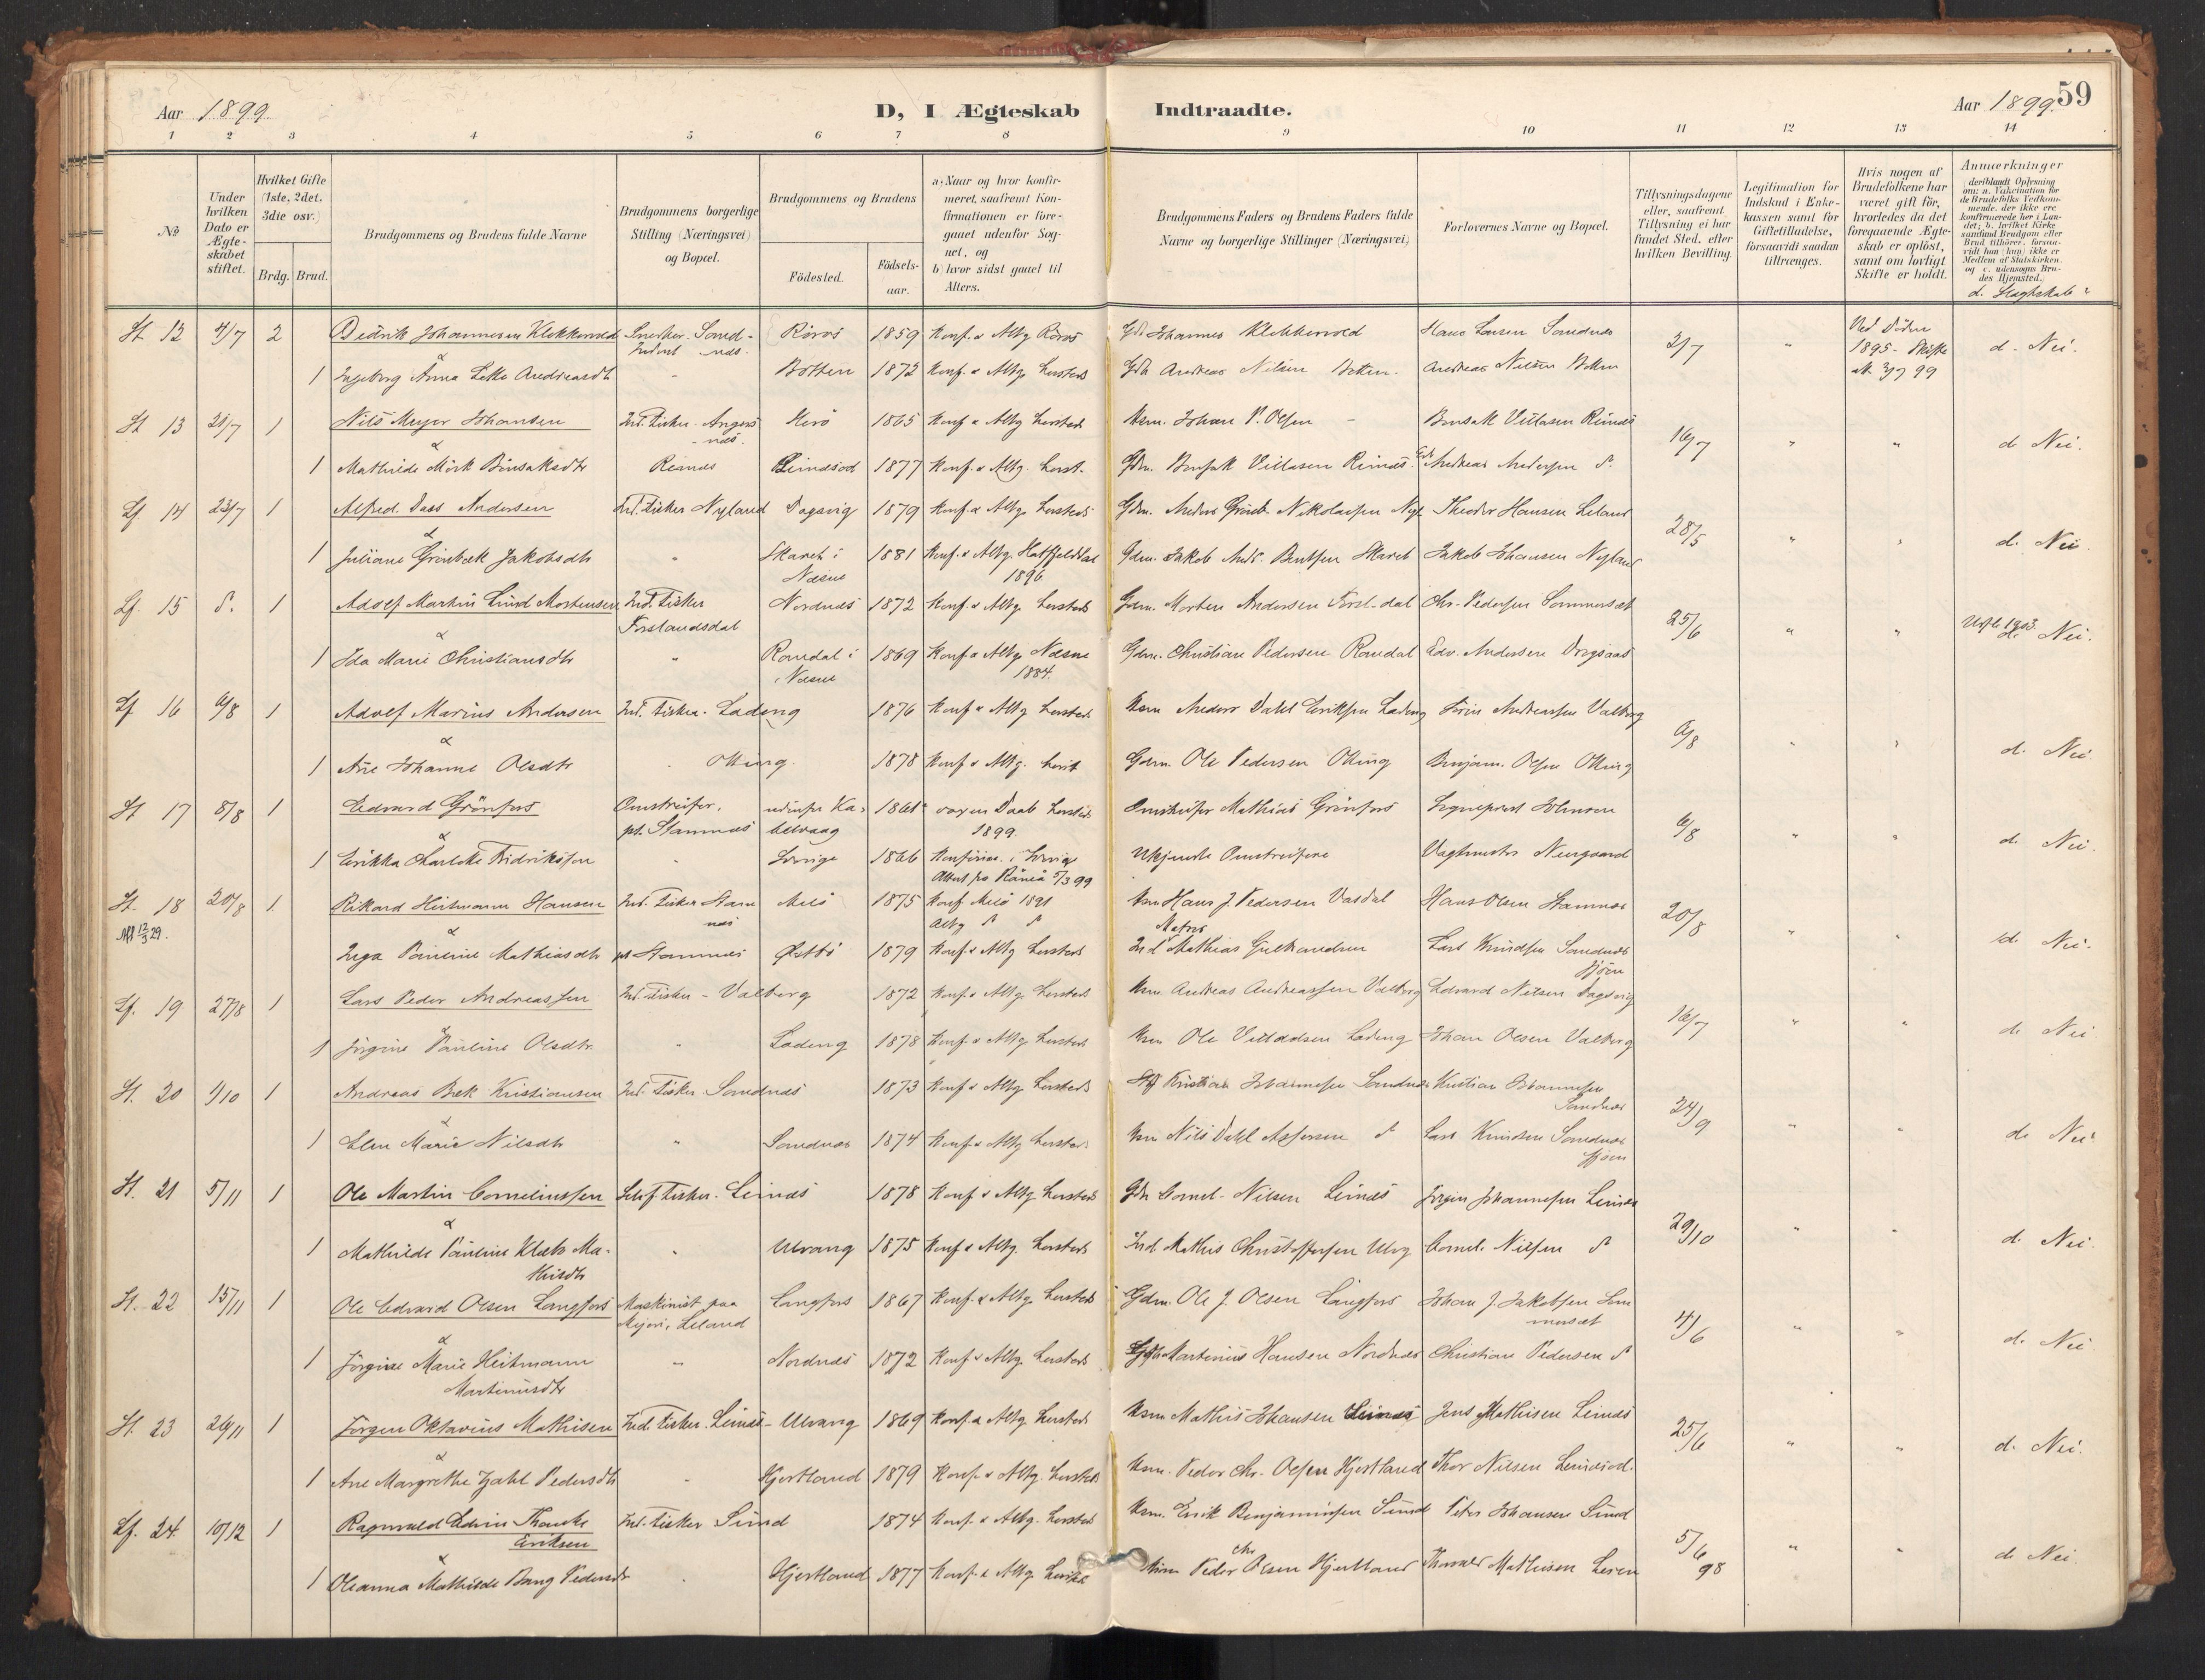 Aar 1899.
D, I Ægteskab Indtraadte.
Aar 1899. 59
1 2 3 4 5 6 7 8 9 10 11 12 13 14
№
Under hvilken Dato er Ægteskabet stiftet.
Hvilket Gifte (1ste, 2det, 3die osv.)
Brdg. Brud.
Brudgommens og Brudens fulde Navne
Brudgommens borgerlige Stilling (Næringsvei) og Bopæl.
Brudgommens og Brudens
Födested. Födsels-aar.
a) Naar og hvor konfirmeret, saafremt Konfirmationen er foregaaet udenfor Sognet, og
b) hvor sidst gaaet til Alters.
Brudgommens Faders og Brudens Faders fulde Navne og borgerlige Stillinger (Næringsvei)
Forlovernes Navne og Bopæl.
Tillysningsdagene eller, saafremt Tillysning ei har fundet Sted, efter hvilken Bevilling.
Legitimation for Indskud i Enkekassen samt for Giftetilladelse, forsaavidt saadan tiltrænges.
Hvis nogen af Brudefolkene har været gift för, hvorledes da det foregaaende Ægteskab er oplöst, samt om lovligt Skifte er holdt.
Anmærkninger (deriblandt Oplysning om: a. Vakcination for de Brudefolks Vedkommende, der ikke ere konfirmerede her i Landet; b. hvilket Kirkesamfund Brudgom eller Brud tilhörer, forsaavidt han (hun) ikke er Medlem af Statskirken, og c. udensogns Brudes Hjemsted.)
d. Slegtskab?
St 12 4/7 2 Bedrik Johannesen Klokkervold Snedker Sandnes Röros 1859 Konf. & Altg Röros Johannes Klokkervold Hans Larsen Sandnes 2/7 " Ved Döden 1895 - Skifte 3/7 99 d. Nei.
&
1 Ingeborg Anna Andreasdtr " Botten 1872 Konf. & Altg. Hersteds Andreas Nilsen Botten. Andreas Nilsen Botten
St 13 21/7 1 Nils Meyer Johansen Ind. Fisker Herö 1865 Konf. & Altg Hersteds Hsm. Johan P. Olsen - Bonsak Villasen Reinés 16/7 " " d. Nei.
&
1 Mathilde Mörk Bonsaksdtr Reinés Leinesod 1877 Konf. & Altg. Herst. Gdm. Bonsak Villasen Reinés Andreas Andersen
Lf 14 23/7 1 Alfred Dass Andersen Ind. Fisker Nyland Dagsvig 1879 Konf. & Altg. Hersteds Gdm. Anders Grönb. Nikolaisen Theodor Hansen Leland 28/5 " " d. Nei.
&
1 Juliane Grönbæk Jakobsdtr " Skaret i Næsne 1881 Konf. & Altg. Hatfjelddal 1896 Gdm. Jakob Andr. Bentsen Skaret Jakob Johansen Nyland
Lf. 15 1 Adolf Martin Lund Mortensen Ind. Fisker Forslandsdal Nordnæs 1872 Konf. & Altg. Hersteds Gdm. Morten Andersen Forsl-dal Chr. Pedersen Sommerset 25/6 " " d. Nei.
&
1 Ida Marie Christiansdtr " Ramdal i Næsne 1869 Konf & Altg. Næsne 1884. Gdm. Christian Pedersen Ramdal Edv. Andersen
Lf 16 6/8 1 Adolf Marius Andersen Ind. Fisker. Ladeng 1876 Konf & Altg Hersteds Hsm Anders Dahl Eriksen Ladeng Andreassen Valberg 6/8 " " d. Nei
&
1 Ane Johanne Olsdtr " Otting. 1878 Konf & Altg. Gdm. Ole Pedersen Otting Benjam. Olsen Otting
St 17 8/8 1 Edvard Grönfors Omstreifer, pt. Stamnæs Kabelvaag 1861 voxen Daab Hersteds 1899 Omstreifer Mathias Grönfors Sogneprest Johnson 6/8 " " d. Nei.
&
1 Erikka Charlotte Fridriksson " Sverige 1866 Konfirm. i Sverige Råneå 5/3 99 Ukjendte Omstreifere Vagtmester Neergaard
St. 18 20/8 1 Rikard Heitmann Hansen Ind. Fisker Stamnæs Melö 1875 Konf Melö 1891 Hsm Hans J. Pedersen Vasdal Hans Olsen Stamnæs 20/8 " " d. Nei.
&
Inga Pauline Mathiasdtr pt Stamnæs Östbö 1879 Konf. & Altg Hersteds Mathias Gulbrandsen Lars Knudsen Sandnessjöen
Lf. 19 27/8 1 Lars Peder Andreassen Ind. Fisker - Valberg 1872 Konf. & Altg. Hersteds Hsm. Andreas Andreassen Valberg Edvard Nilsen Dagsvig 16/7 " " d. Nei
&
1 Jörgine Pauline Olsdtr. " Ladeng 1878 Konf. & Altg. Hersteds Hsm Ole Villadsen Ladeng Johan Olsen Valberg
St. 20 1/10 1 Andreas Bæk Kristiansen Ind. Fisker Sandnæs 1873 Konf. & Altg. Hersteds Kristian Johannesen Sandnæs Kristian Johannesen Sandnæs 24/9 " " d. Nei
&
1 Elen Marie Nilsdtr " Sandnæs 1874 Konf. & Altg. Hersteds Hsm Nils Dahl Lars Knudsen Sandnessjöen
St. 21 5/11 1 Ole Martin Corneliussen Fisker. Leinæs 1878 Konf & Altg Hersteds Gdm Cornel. Nilsen Leinæs Jörgen Johannesen Leinæs 29/10 " " d. Nei.
&
1 Mathilde Pauline Mathisdtr " Ulvang 1875 Konf & Altg. Hersteds Ind Mathis Christoffersen Ulvg Cornel. Nilsen
St. 22 15/11 1 Ole Edvard Olsen Langfors Maskinist paa Mejeri, Leland Langfors 1867 Konf. & Altg. Hersteds Gdm. Ole J. Olsen Langfors Johan J. Jakobsen Sommerset 4/6 " " d. Nei
&
1 Jörgine Marie Heitmann Martinusdtr " Nordnæs 1872 Konf & Altg. Hersteds Martinus Hansen Nordnæs Christian Pedersen
St. 23 26/11 1 Jörgen Oktavius Mathisen Ind. Fisker. Leinæs - Ulvang 1869 Konf. & Altg Hersteds Hsm Mathis Johansen Leinæs Jens Mathisen Leinæs 25/6 " " d. Nei.
&
1 Ane Margrethe Zahl Pedersdtr " Hjertland 1879 Konf. & Altg. Hersteds Hsm. Peder Chr. Olsen Hjertland Thor Nilsen Leinesod.
Lf. 24. 10/12 1 Ragnvald Edvin Eriksen Ind. Fisker Sund 1874 Konf. & Altg. Hersteds Hsm. Erik Benjaminsen Sund Peter Johansen Sund 5/6 98 " " d. Nei.
&
1 Oleanna Mathilde Bang Pedersdtr " Hjertland 1877 Konf. & Altg. Hersteds Peder Chr Olsen Hjertland Mathisen